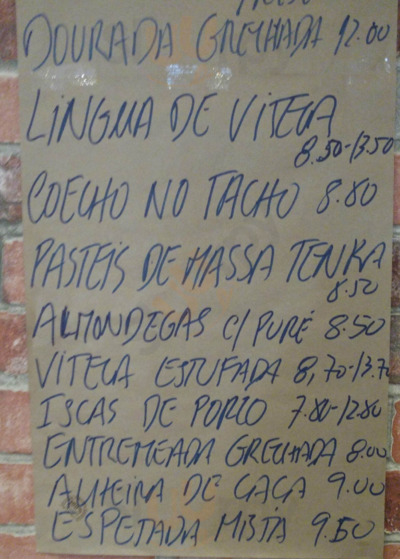 DOURADA GRELHADA 12.00
LINGUA DE VITELA
8.50-13.50
COELHO NO TACHO 8.80
PASTEIS DE MASSA TENRA
8.50
ALMONDEGAS C/ PURÉ 8.50
VITELA ESTUFADA 8,70-13.70
ISCAS DE PORCO 7.80-12.80
ENTREMEADA GRELHADA 8.00
ALHEIRA DE CAÇA 9.00
ESPETADA MISTA 9.50